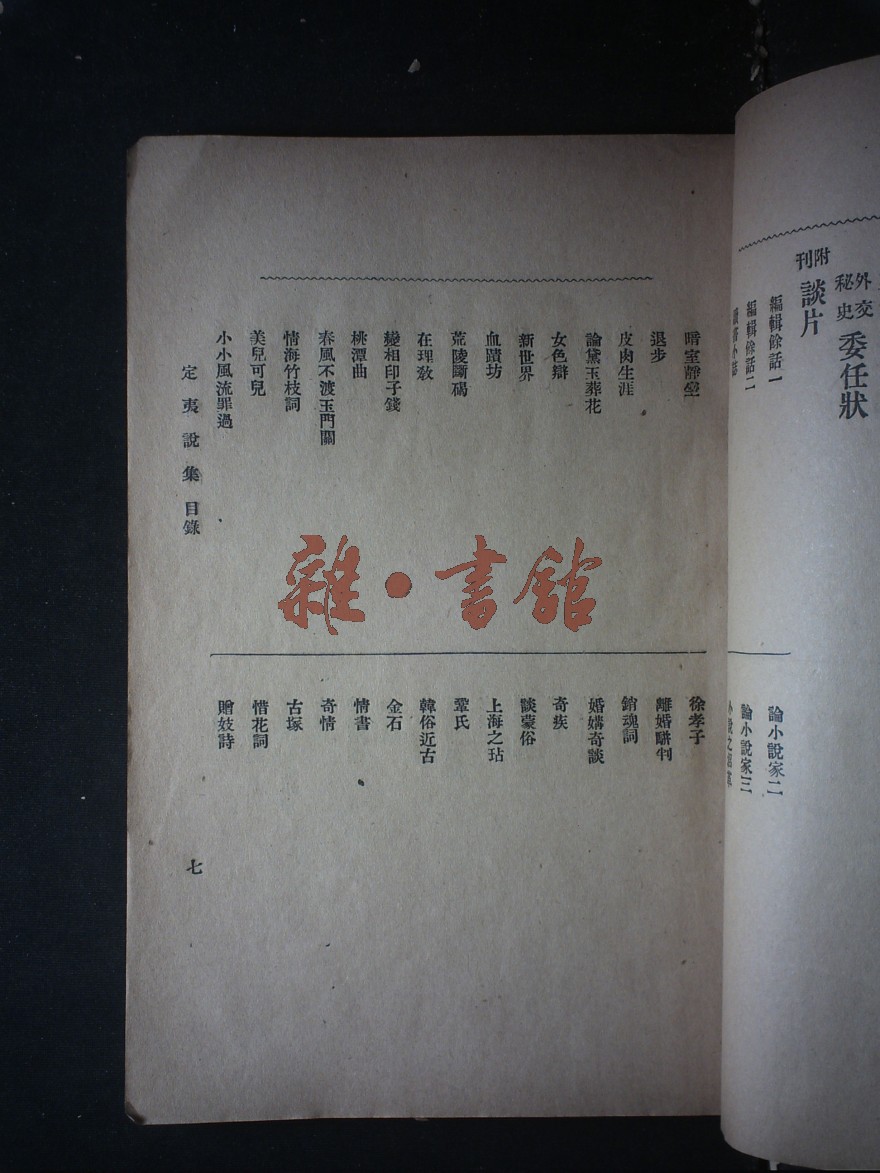 外交秘史 委任狀
附刊 談片
編輯餘話一
論小說家二
編輯餘話二
論小說家三
暗室靜坐
徐孝子
退步
離婚駢判
皮肉生涯
銷魂詞
論黛玉葬花
婚媾奇談
女色辯
奇疾
新世界
談蒙俗
血蹟坊
上海之玷
荒陵斷碣
鞏氏
在理敎
韓俗近古
變相印子錢
金石
桃潭曲
情書
春風不渡玉門關
奇情
情海竹枝詞
古塚
美兒可兒
惜花詞
小小風流罪過
贈妓詩
定夷說集 目錄
七
雜·書館